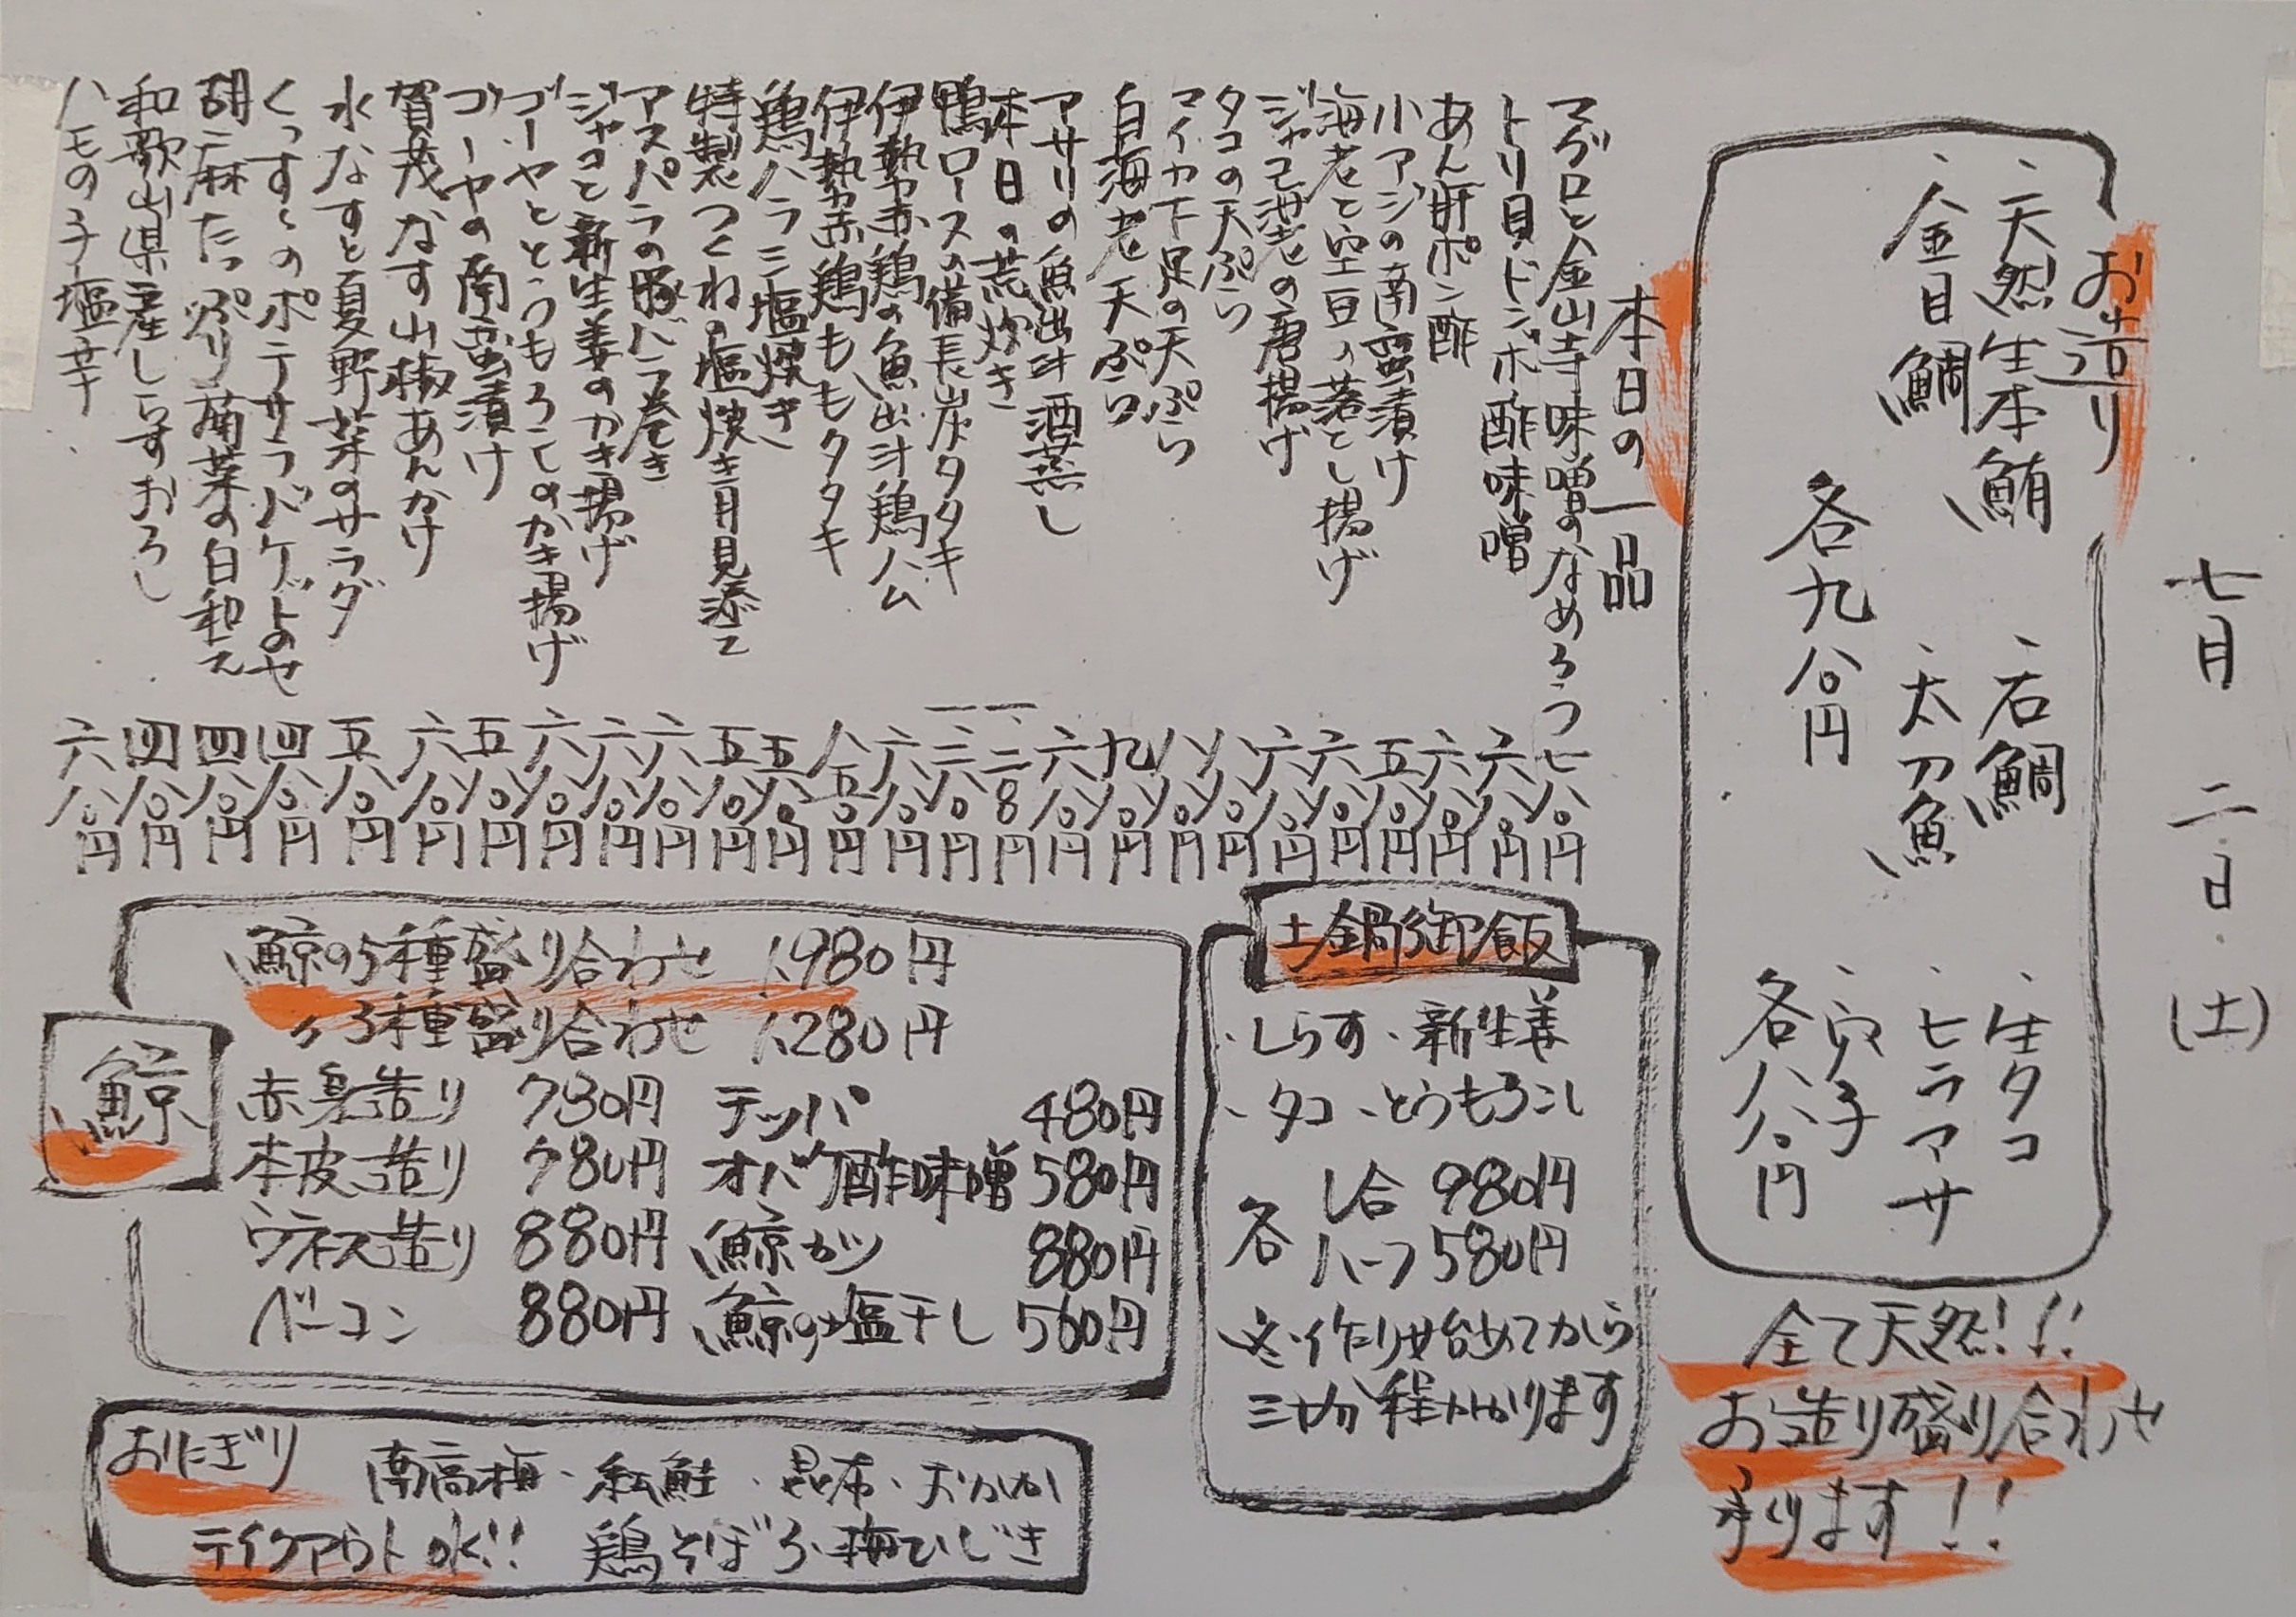 七月二日(土)
お造り
、天然生本鮪 、石鯛 、生タコ
、金目鯛 、太刀魚 、ヒラマサ
、穴子
各九八〇円 各八八〇円
全て天然!!!
お造り盛り合わせ
承ります!!
本日の一品
マグロと金山寺味噌のなめろう 七八〇円
トリ貝ドンポ酢味噌 六八〇円
あん肝ポン酢 六八〇円
小アジの南蛮漬け 五八〇円
海老と空豆の落とし揚げ 六八〇円
ジャコ海老の唐揚げ 六八〇円
タコの天ぷら 八八〇円
マイカ下足の天ぷら 八八〇円
白海老天ぷら 九八〇円
アサリの魚出汁酒蒸し 六八〇円
本日の荒炊き
鴨ロースの備長炭タタキ
伊勢赤鶏の魚出汁鶏ハム 六八〇円
伊勢赤鶏ももタタキ 八五〇円
鶏ハラミ塩焼き 五八〇円
特製つくねの塩焼き月見添え 五八〇円
アスパラの豚バラ巻き 六八〇円
ジャコと新生姜のかき揚げ 六八〇円
ゴーヤととうもろこしのかき揚げ 六八〇円
ゴーヤの南蛮漬け 五八〇円
賀茂なす山椒あんかけ 六八〇円
水なすと夏野菜のサラダ 五八〇円
くっすゝのポテサラバゲットのせ 四八〇円
胡麻たっぷり菊菜の白和え 四八〇円
和歌山県産しらすおろし 四八〇円
ハモの子塩辛 六八〇円
土鍋御飯
・しらす、新生姜
、タコ、とうもろこし
各 1合 980円
ハーフ580円
※作り始めてから
三十分程かかります
鯨
鯨の5種盛り合わせ 1,980円
〃3種盛り合わせ 1,280円
赤身造り 780円 テッパ 480円
本皮造り 780円 オバケ酢味噌 580円
ウネス造り 880円 鯨カツ 880円
ベーコン 880円 鯨の塩干し 560円
おにぎり 南高梅、紅鮭、昆布、おかか
テイクアウト OK!! 鶏そぼろ・梅ひじき